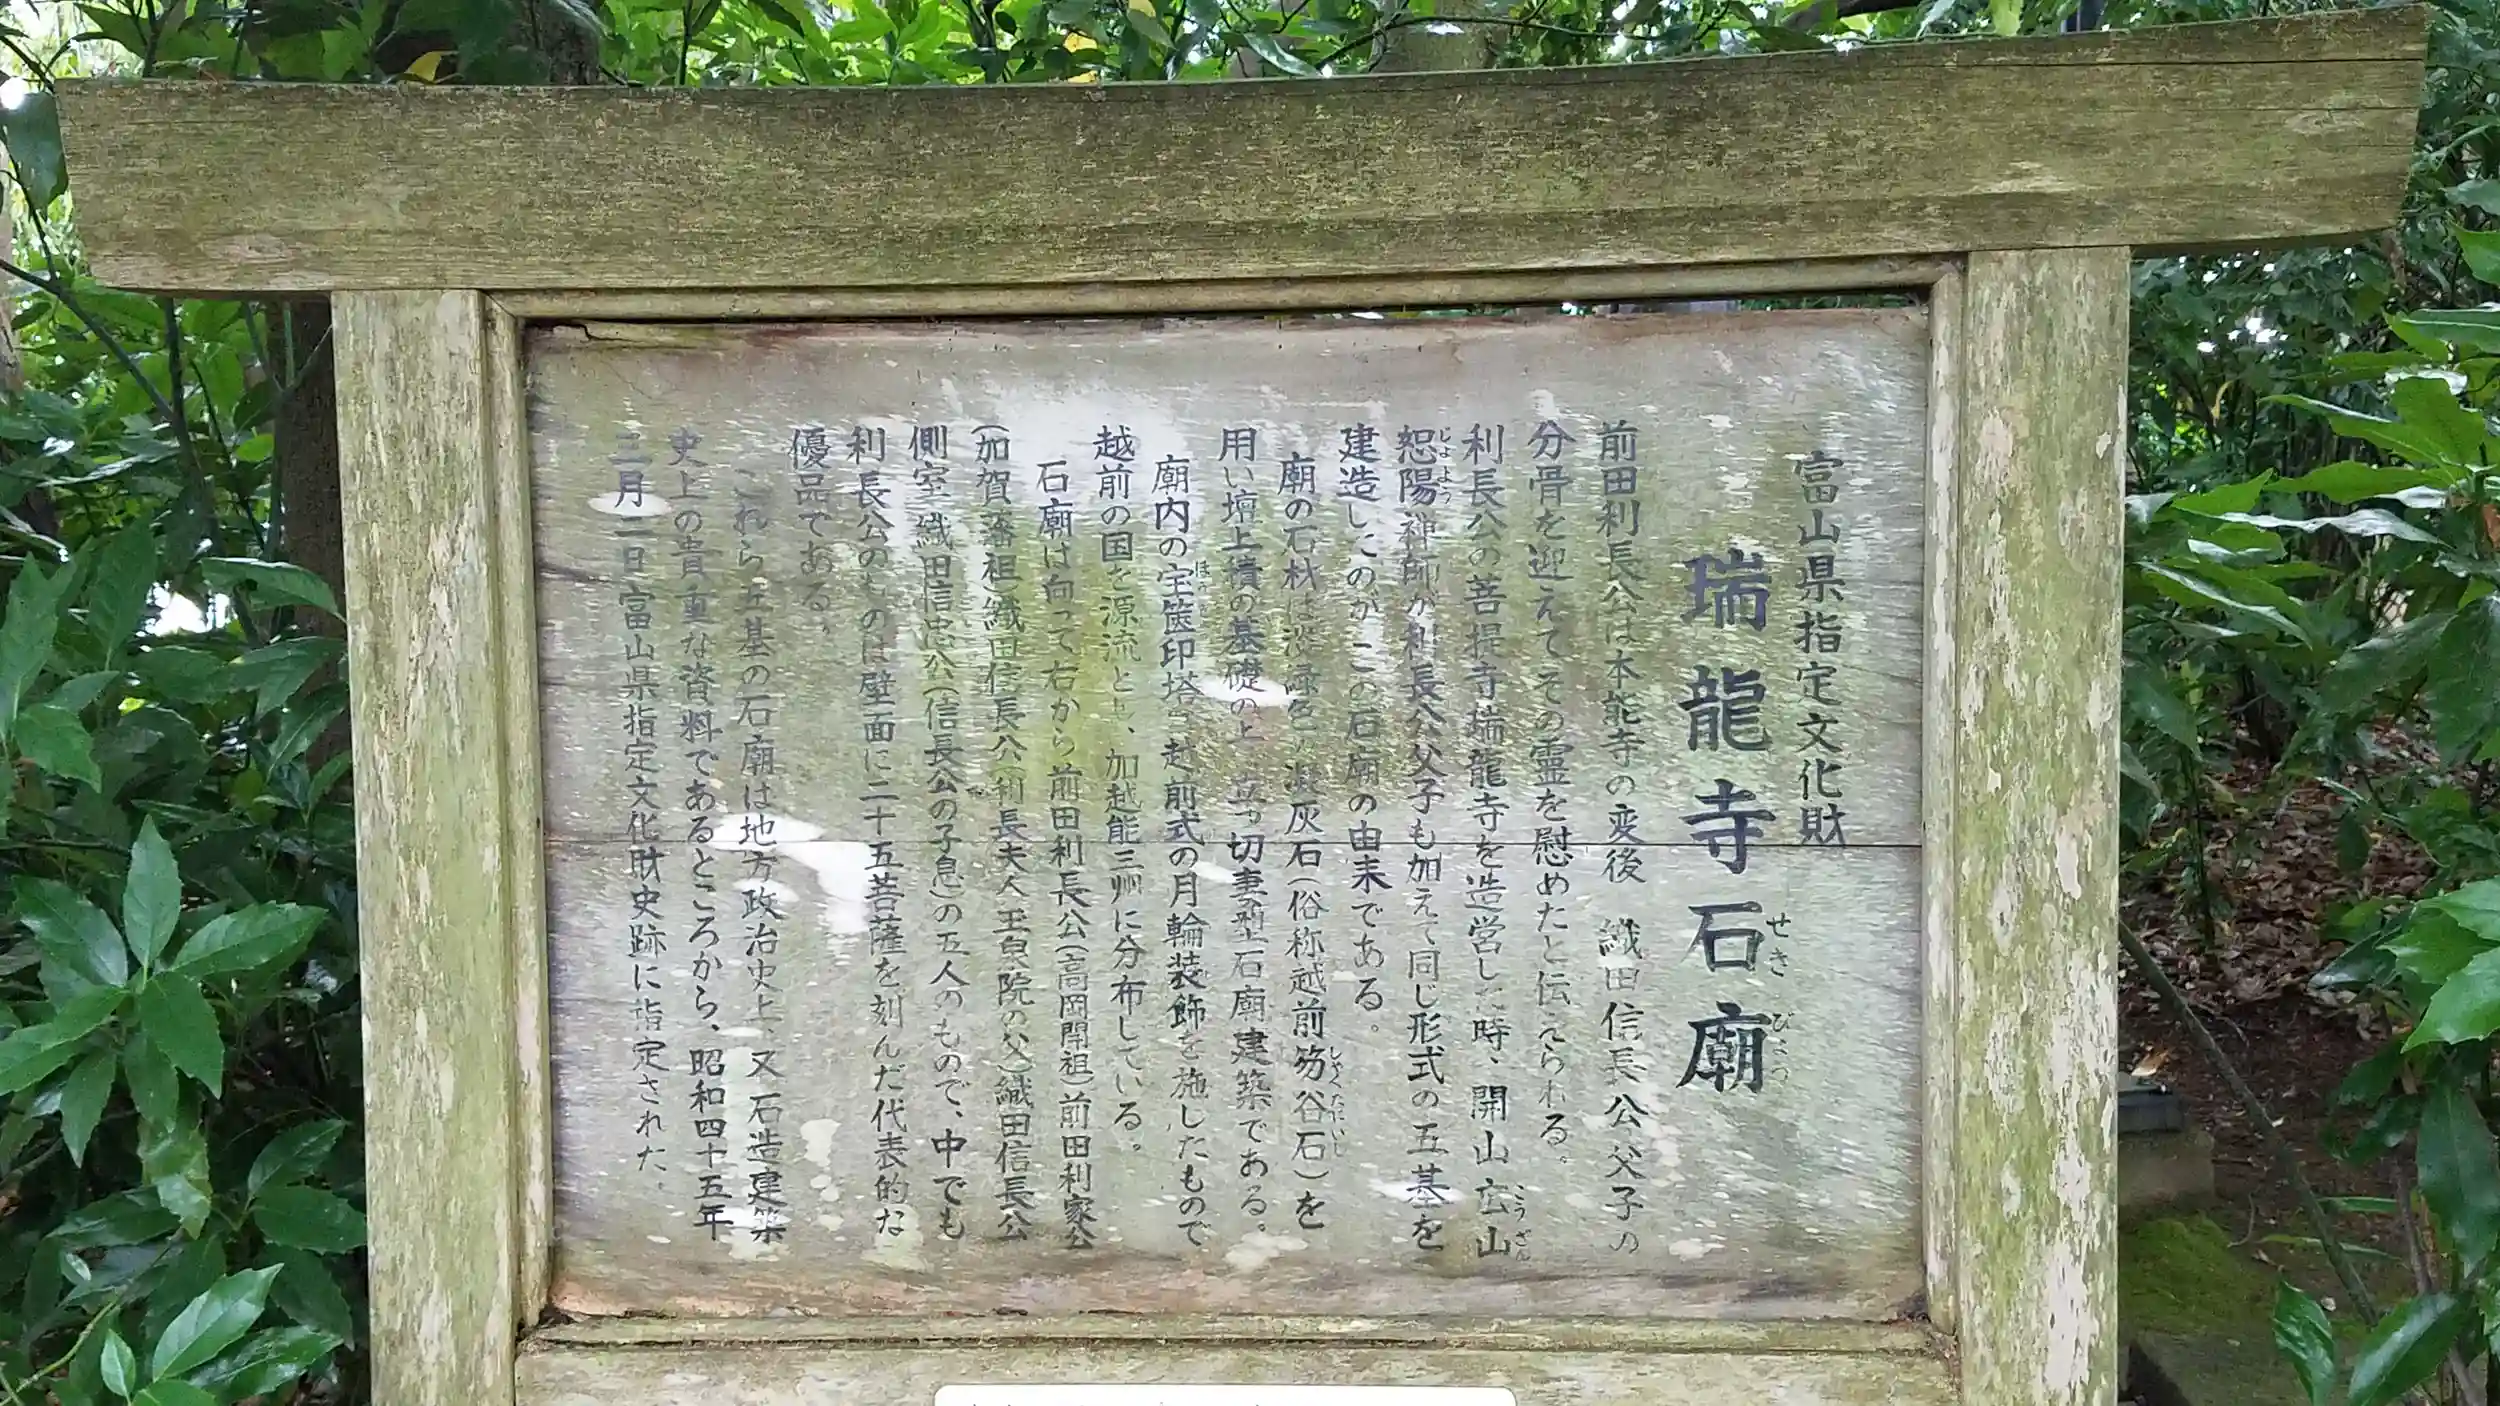 富山県指定文化財
瑞龍寺石廟
せき びょう
前田利長公は本能寺の変後 織田信長公父子の
分骨を迎えてその霊を慰めたと伝えられる。
利長公の菩提寺瑞龍寺を造営した時、開山広山
こうざん
恕陽禅師が利長公父子も加えて同じ形式の五基を
じょよう
建造したのがこの石廟の由来である。
廟の石材は淡緑色の凝灰石(俗称越前笏谷石)を
しゃくたにいし
用い壇上積の基礎の上 立つ切妻型石廟建築である。
廟内の宝篋印塔は越前式の月輪装飾を施したもので
越前の国を源流とし、加越能三州に分布している。
石廟は向って右から前田利長公(高岡開祖)前田利家公
(加賀藩祖)織田信長公(利長夫人玉泉院の父)織田信長公
側室織田信忠公(信長公の子息)の五人のもので、中でも
利長公のものは壁面に二十五菩薩を刻んだ代表的な
優品である。
これら五基の石廟は地方政治史上、又石造建築
史上の貴重な資料であるところから、昭和四十五年
二月二日富山県指定文化財史跡に指定された。